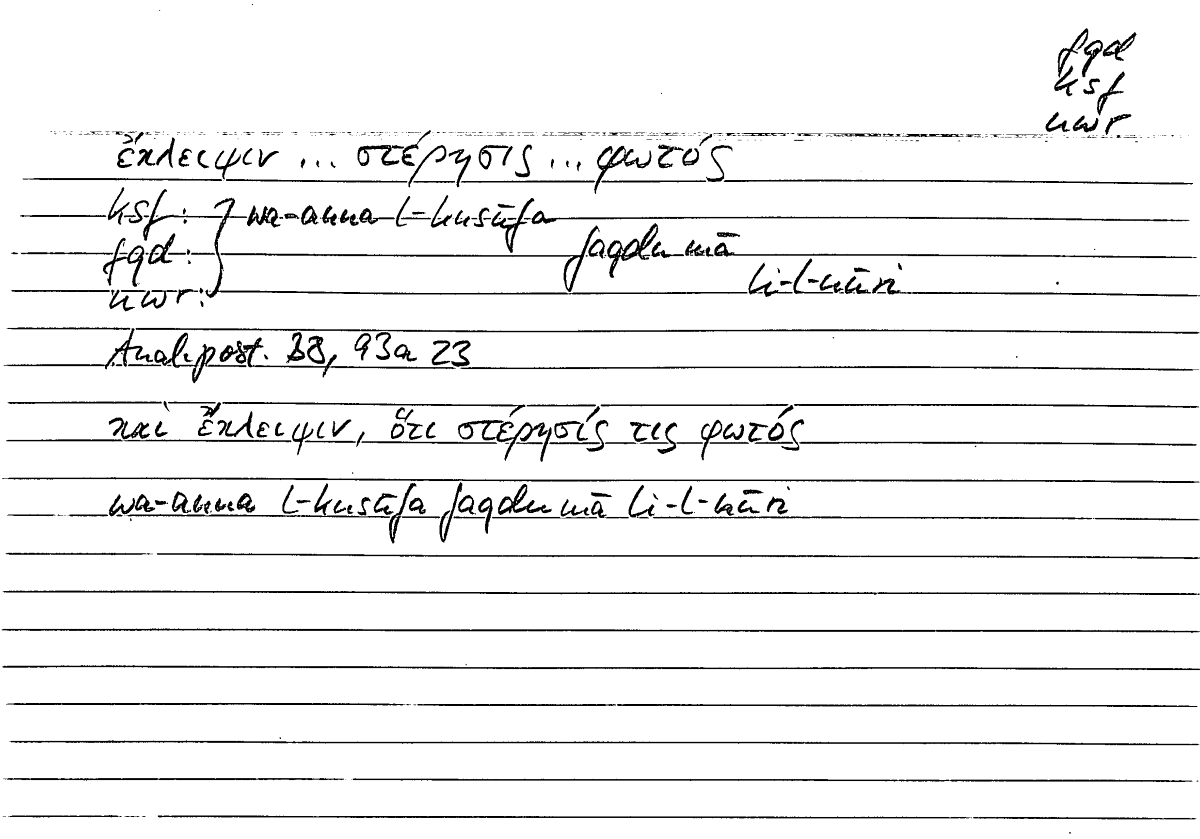 fqd
ksf
nwr
ἔκλειψιν ... στέρησις ... φωτός
ksf: } wa-anna l-kusūfa
fqd: faqdu mā
nwr: li-l-nūri
Anal. post. B8, 93a 23
καὶ ἔκλειψιν, ὅτι στέρησίς τις φωτός
wa-anna l-kusūfa faqdu mā li-l-nūri